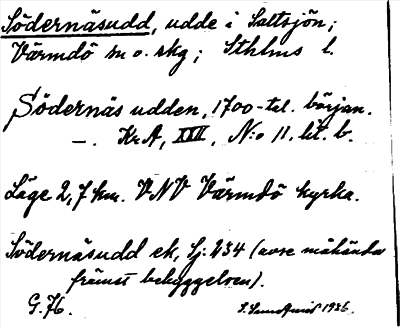 Södernäsudd, udde i Saltsjön;
Värmdö sn o. skg; Sthlms l.
Södernäs udden, 1700-tal. början.
—. Kr.A, XXII, N:o 11. lit. b.
Läge 2,7 km. VNV Värmdö kyrka.
Södernäsudd ek, Sj: 234 (avse måhända
främst bebyggelsen).
G. 76. 1936.